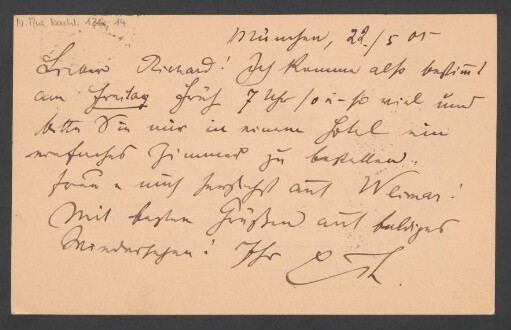 N. Mus. Nachl. 124, 14
München, 22./5 05
Lieber Richard! Ich komme also bestimmt
am Freitag früh 7 Uhr / 0 u so viel und
bitte Sie mir in einem Hotel ein
einfaches Zimmer zu bestellen.
Freue mich herzlichst auf Weimar!
Mit besten Grüßen auf baldiges
Wiedersehen! Ihr